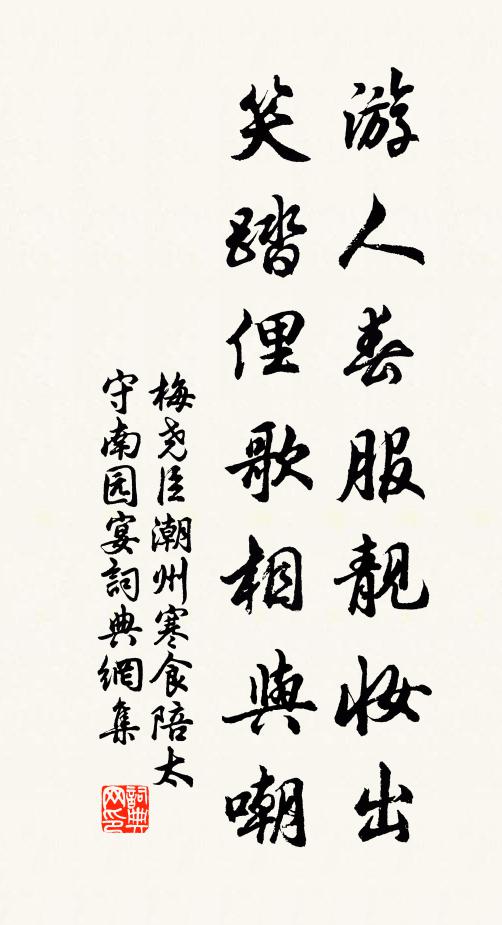 游人春服靓妆出
笑踏俚歌相与嘲
梅尧臣潮州寒食陪太
守南园宴詞典網集
詞典网印